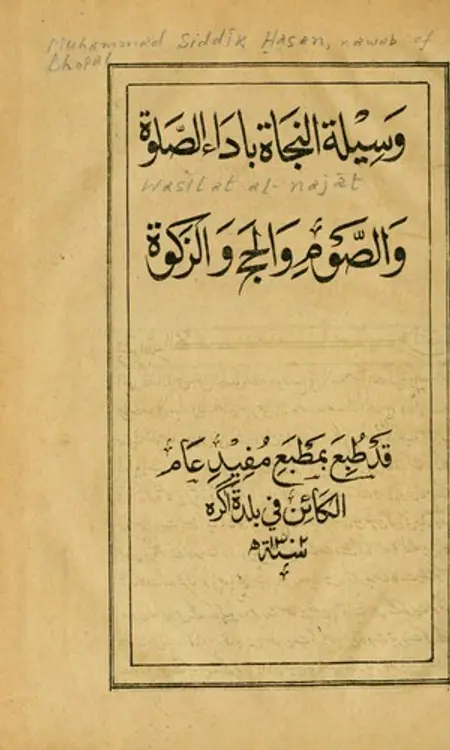 Muhammad Siddīk Ḥasan, nawab of
Bhopal
وَسِيْلَة النجَاة بادَاء الصَّلوٰة
Wasīlat al-najāt
وَالصَّوْمِ وَالحج وَالزكوٰة
قَدْ طُبِعَ بمَطْبَعِ مُفِيْدِ عَام
الكائن في بلدة اكره
سنة ه